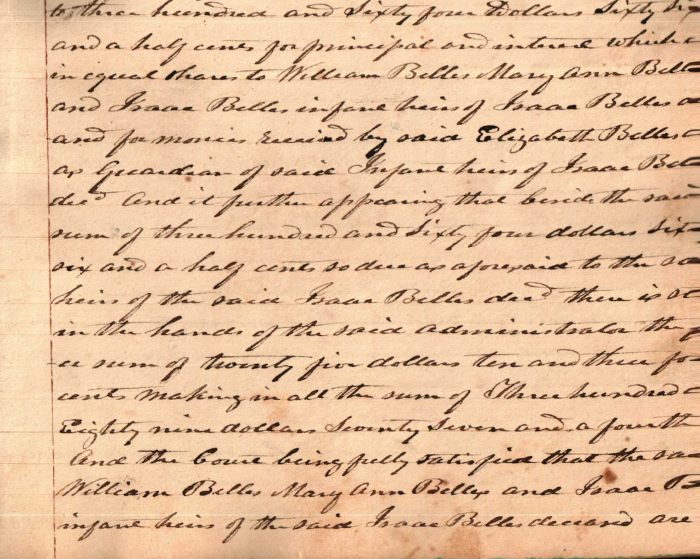 to three hundred and Sixty four Dollars Sixty six
and a half cents for principal and interest which
in equal shares to William Belles Mary Ann Bell
and Isaac Belles infant heirs of Isaac Belles
and for monies received by said Elizabeth Belles
as Guardian of said Infant heirs of Isaac Bel
decd And it further appearing that beside the said
sum of three hundred and Sixty four dollars Six
six and a half cents so due as aforesaid to the sa
heirs of the said Isaac Belles decd there is st
in the hands of the said administrator the
er sum of twenty five dollars ten and three fo
cents making in all the sum of Three hundred
Eighty nine dollars Seventy Seven and a fourth
And the Court being fully satisfied that the sa
William Belles Mary Ann Belles and Isaac B
infant heirs of the said Isaac Belles deceased are